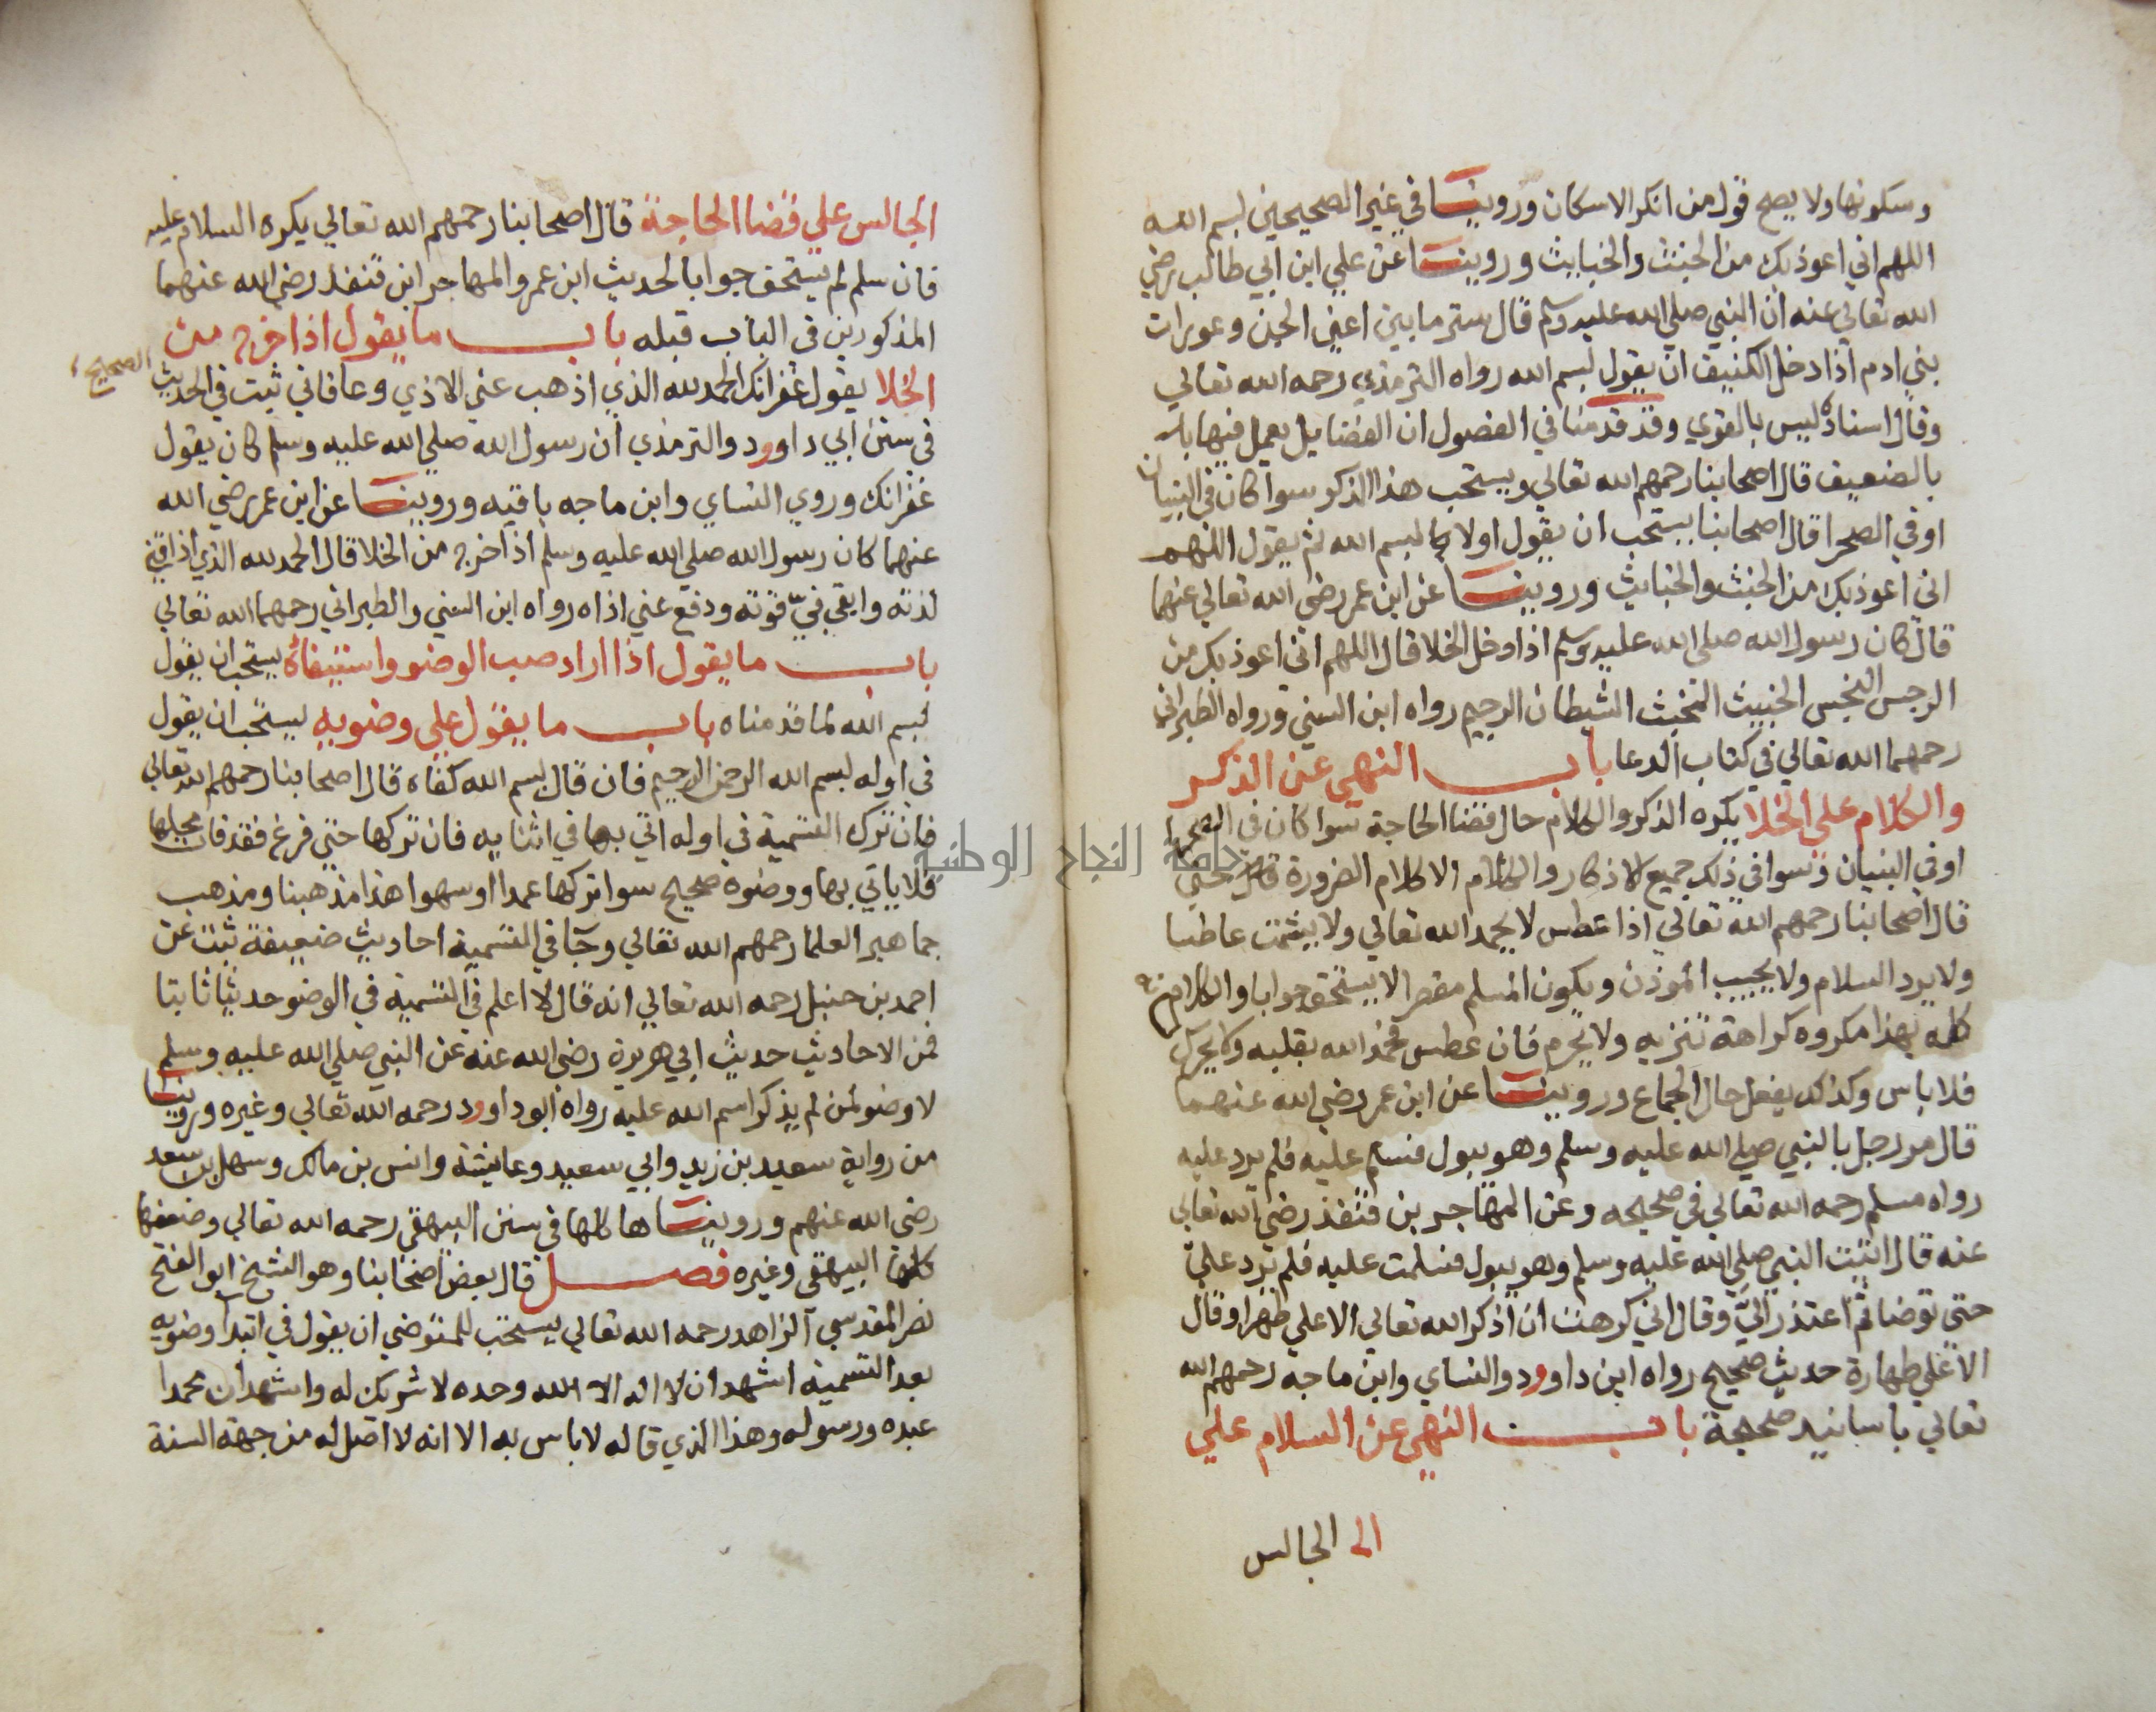 وسكونها ولا يصح قول من انكر الاسكان وروينا في غير الصحيحين بسم الله
اللهم اني اعوذ بك من الخبث والخبايث وروينا عن علي ابن ابي طالب رضي
الله تعالي عنه ان النبي صلي الله عليه وسلم قال ستر ما بين اعين الجن وعورات
بني ادم اذا دخل الكنيف ان يقول بسم الله رواه الترمذي رحمه الله تعالي
وقال اسناده ليس بالقوي وقد قدمنا في الفصول ان الفضايل يعمل فيها
بالضعيف قال اصحابنا رحمهم الله تعالي ويستحب هذا الذكر سوا كان في البنيان
او في الصحرا قال اصحابنا يستحب ان يقول اولا بسم الله ثم يقول اللهم
اني اعوذ بك من الخبث والخبايث وروينا عن ابن عمر رضي الله تعالي عنهما
قال كان رسول الله صلي الله عليه وسلم اذا دخل الخلا قال اللهم اني اعوذ بك من
الرجس النجس الخبيث المخبث الشيطان الرجيم رواه ابن السني ورواه الطبراني
رحمهما الله تعالي في كتاب الدعا باب النهي عن الذكر
والكلام علي الخلا يكره الذكر والكلام حال قضا الحاجة سوا كان في الصحرا
او في البنيان وسوا في ذلك جميع الاذكار والكلام الا كلام الضرورة حتي
قال اصحابنا رحمهم الله تعالي اذا عطس لا يحمد الله تعالي ولا يشمت عاطسا
ولا يرد السلام ولا يجيب الموذن ويكون المسلم مقصرا لا يستحق جوابا والكلام
كله بهذا مكروه كراهة تنزيه ولا يحرم فان عطس فحمد الله بقلبه ولا يحرك
فلا باس وكذلك يفعل حال الجماع وروينا عن ابن عمر رضي الله عنهما
قال مر رجل بالنبي صلي الله عليه وسلم وهو يبول فسلم عليه فلم يرد عليه
رواه مسلم رحمه الله تعالي في صحيحه وعن المهاجر بن قنفذ رضي الله تعالي
عنه قال اتيت النبي صلي الله عليه وسلم وهو يبول فسلمت عليه فلم يرد عليّ
حتي توضا ثم اعتذر اليّ وقال اني كرهت ان اذكر الله تعالي الا علي طهر او قال
الا علي طهارة حديث صحيح رواه ابن داوود والنساي وابن ماجه رحمهم الله
تعالي باسانيد صحيحة باب النهي عن السلام علي
الجالس
الجالس علي قضا الحاجة قال اصحابنا رحمهم الله تعالي يكره السلام عليه
فان سلم لم يستحق جوابا لحديث ابن عمر والمهاجر ابن قنفذ رضي الله عنهما
المذكورين في الباب قبله باب ما يقول اذا خرج من
الخلا يقول غفرانك الحمد لله الذي اذهب عني الاذي وعافاني ثبت في الحديث الصحيح
في سنن ابي داوود والترمذي ان رسول الله صلي الله عليه وسلم كان يقول
غفرانك وروي النساي وابن ماجه باقيه وروينا عن ابن عمر رضي الله
عنهما كان رسول الله صلي الله عليه وسلم اذا خرج من الخلا قال الحمد لله الذي اذاقني
لذته وابقي فيّ قوته ودفع عني اذاه رواه ابن السني والطبراني رحمهما الله تعالي
باب ما يقول اذا اراد صب الوضو واستيفائه يستحب ان يقول
بسم الله لما قدمناه باب ما يقول علي وضويه يستحب ان يقول
في اوله بسم الله الرحمن الرحيم فان قال بسم الله كفاه قال اصحابنا رحمهم الله تعالي
فان ترك التسمية في اوله اتي بها في اثنايه فان تركها حتي فرغ فقد فات محلها
فلا ياتي بها ووضوه صحيح سوا تركها عمدا او سهوا هذا مذهبنا ومذهب
جماهير العلما رحمهم الله تعالي وجآ في التسمية احاديث ضعيفة ثبت عن
احمد بن حنبل رحمه الله تعالي انه قال لا اعلم في التسمية في الوضو حديثا ثابتا
فمن الاحاديث حديث ابي هريرة رضي الله عنه عن النبي صلي الله عليه وسلم
لا وضو لمن لم يذكر اسم الله عليه رواه ابو داوود رحمه الله تعالي وغيره وروينا
من رواية سعيد بن زيد وابي سعيد وعايشة وانس بن مالك وسهل بن سعد
رضي الله عنهم وروينا ها كلها في سنن البيهقي رحمه الله تعالي وضعفها
كلها البيهقي وغيره فصل قال بعض اصحابنا وهو الشيخ ابو الفتح
نصر المقدسي الزاهد رحمه الله تعالي يستحب للمتوضي ان يقول في ابتدا وضويه
بعد التسمية اشهد ان لا اله الا الله وحده لا شريك له واشهد ان محمدا
عبده ورسوله وهذا الذي قاله لا باس به الا انه لا اصل له من جهة السنة
جامعة النجاح الوطنية